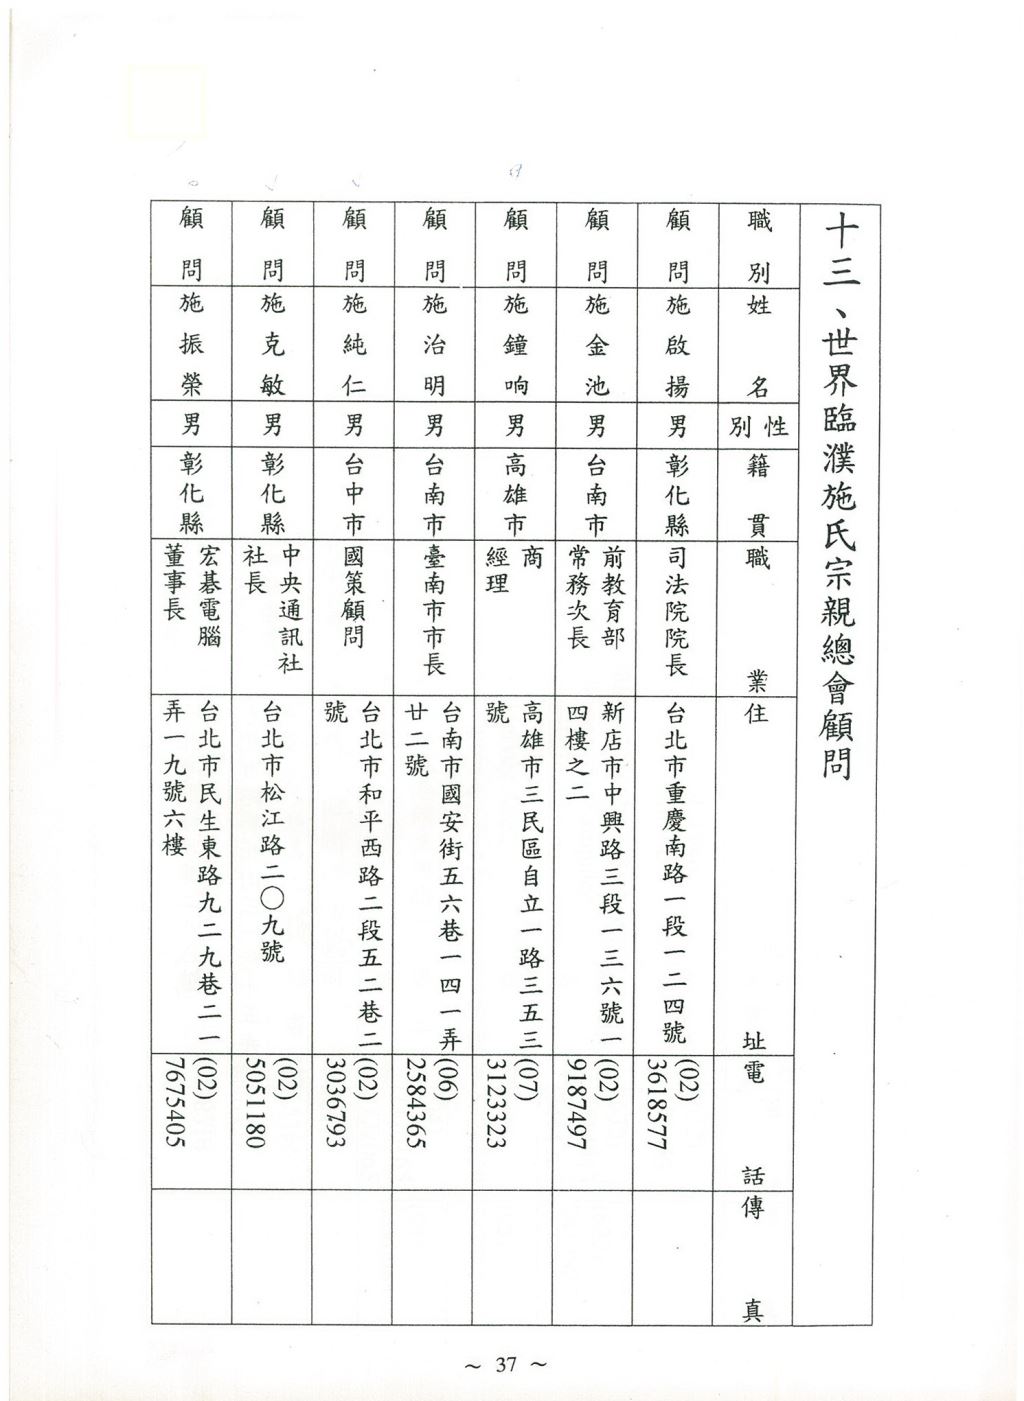 十三、世界臨濮施氏宗親總會顧問
職別
姓名
性別
籍貫
職業
住址
電話
傳真
顧問
施啟揚
男
彰化縣
司法院院長
台北市重慶南路一段一二四號
(02)
3618577
顧問
施金池
男
台南市
前教育部
常務次長
新店市中興路三段一三六號一
四樓之二
(02)
9187497
顧問
施鐘响
男
高雄市
商
經理
高雄市三民區自立一路三五三
號
(07)
3123323
顧問
施治明
男
台南市
臺南市市長
台南市國安街五六巷一四一弄
廿二號
(06)
2584365
顧問
施純仁
男
台中市
國策顧問
台北市和平西路二段五二巷二
號
(02)
3036793
顧問
施克敏
男
彰化縣
中央通訊社
社長
台北市松江路二〇九號
(02)
5051180
顧問
施振榮
男
彰化縣
宏碁電腦
董事長
台北市民生東路九二九巷二一
弄一九號六樓
(02)
7675405
~ 37 ~